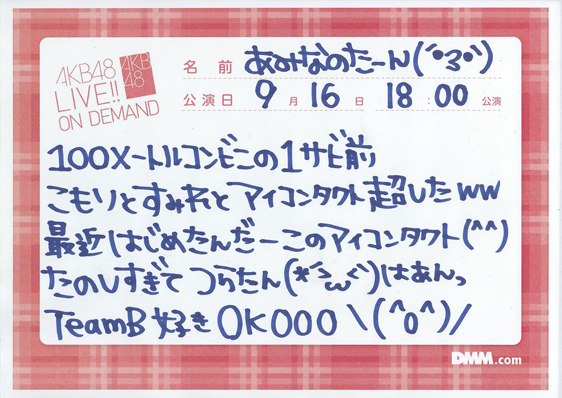 AKB48
LIVE!!
ON DEMAND
AKB
48
名前 あみなのたーん(´°3°`)
公演日 9月16日 18:00公演
100メートルコンビニの1サビ前
こもりとすみれとアイコンタクト超したww
最近はじめたんだーこのアイコンタクト(^^)
たのしすぎてつらたん(*´>ω<`)はあんっ
TeamB好きOKOOO\(^o^)/
DMM.com